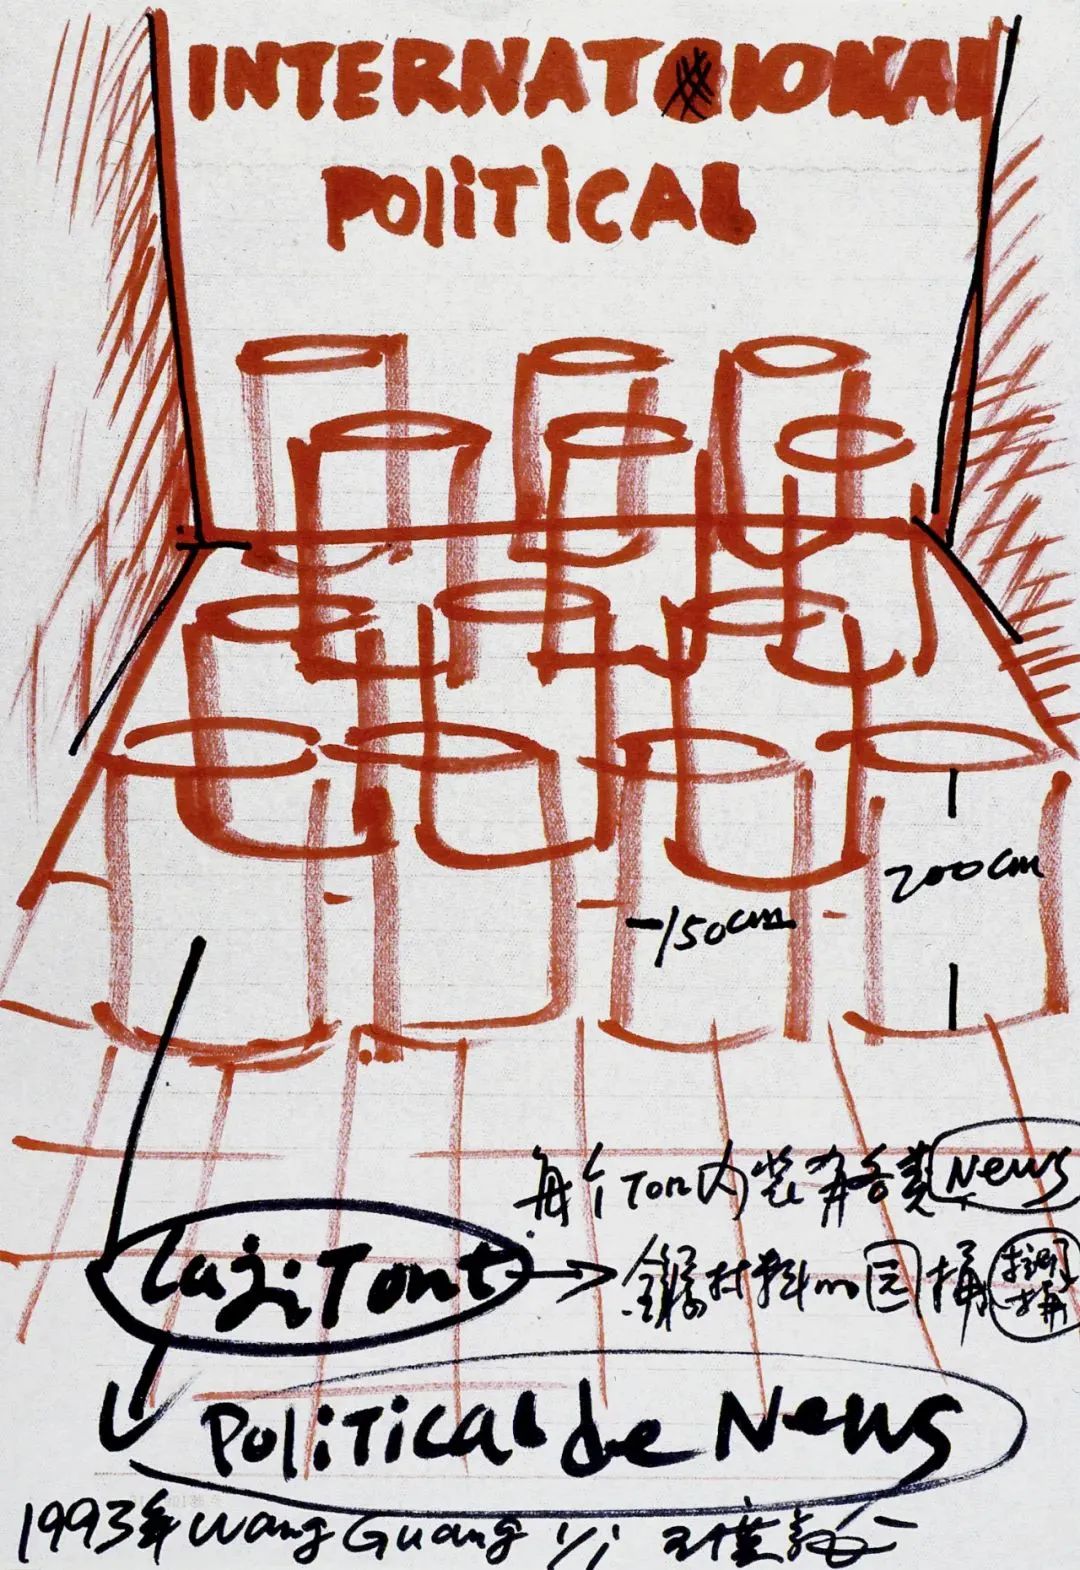 INTERNATIONAL
POLITICAL
200cm
150cm
每个Ton内装有各类News
LajiTont
材料的圆桶
POLITICAL de News
1993年Wang Guang yi 王广义